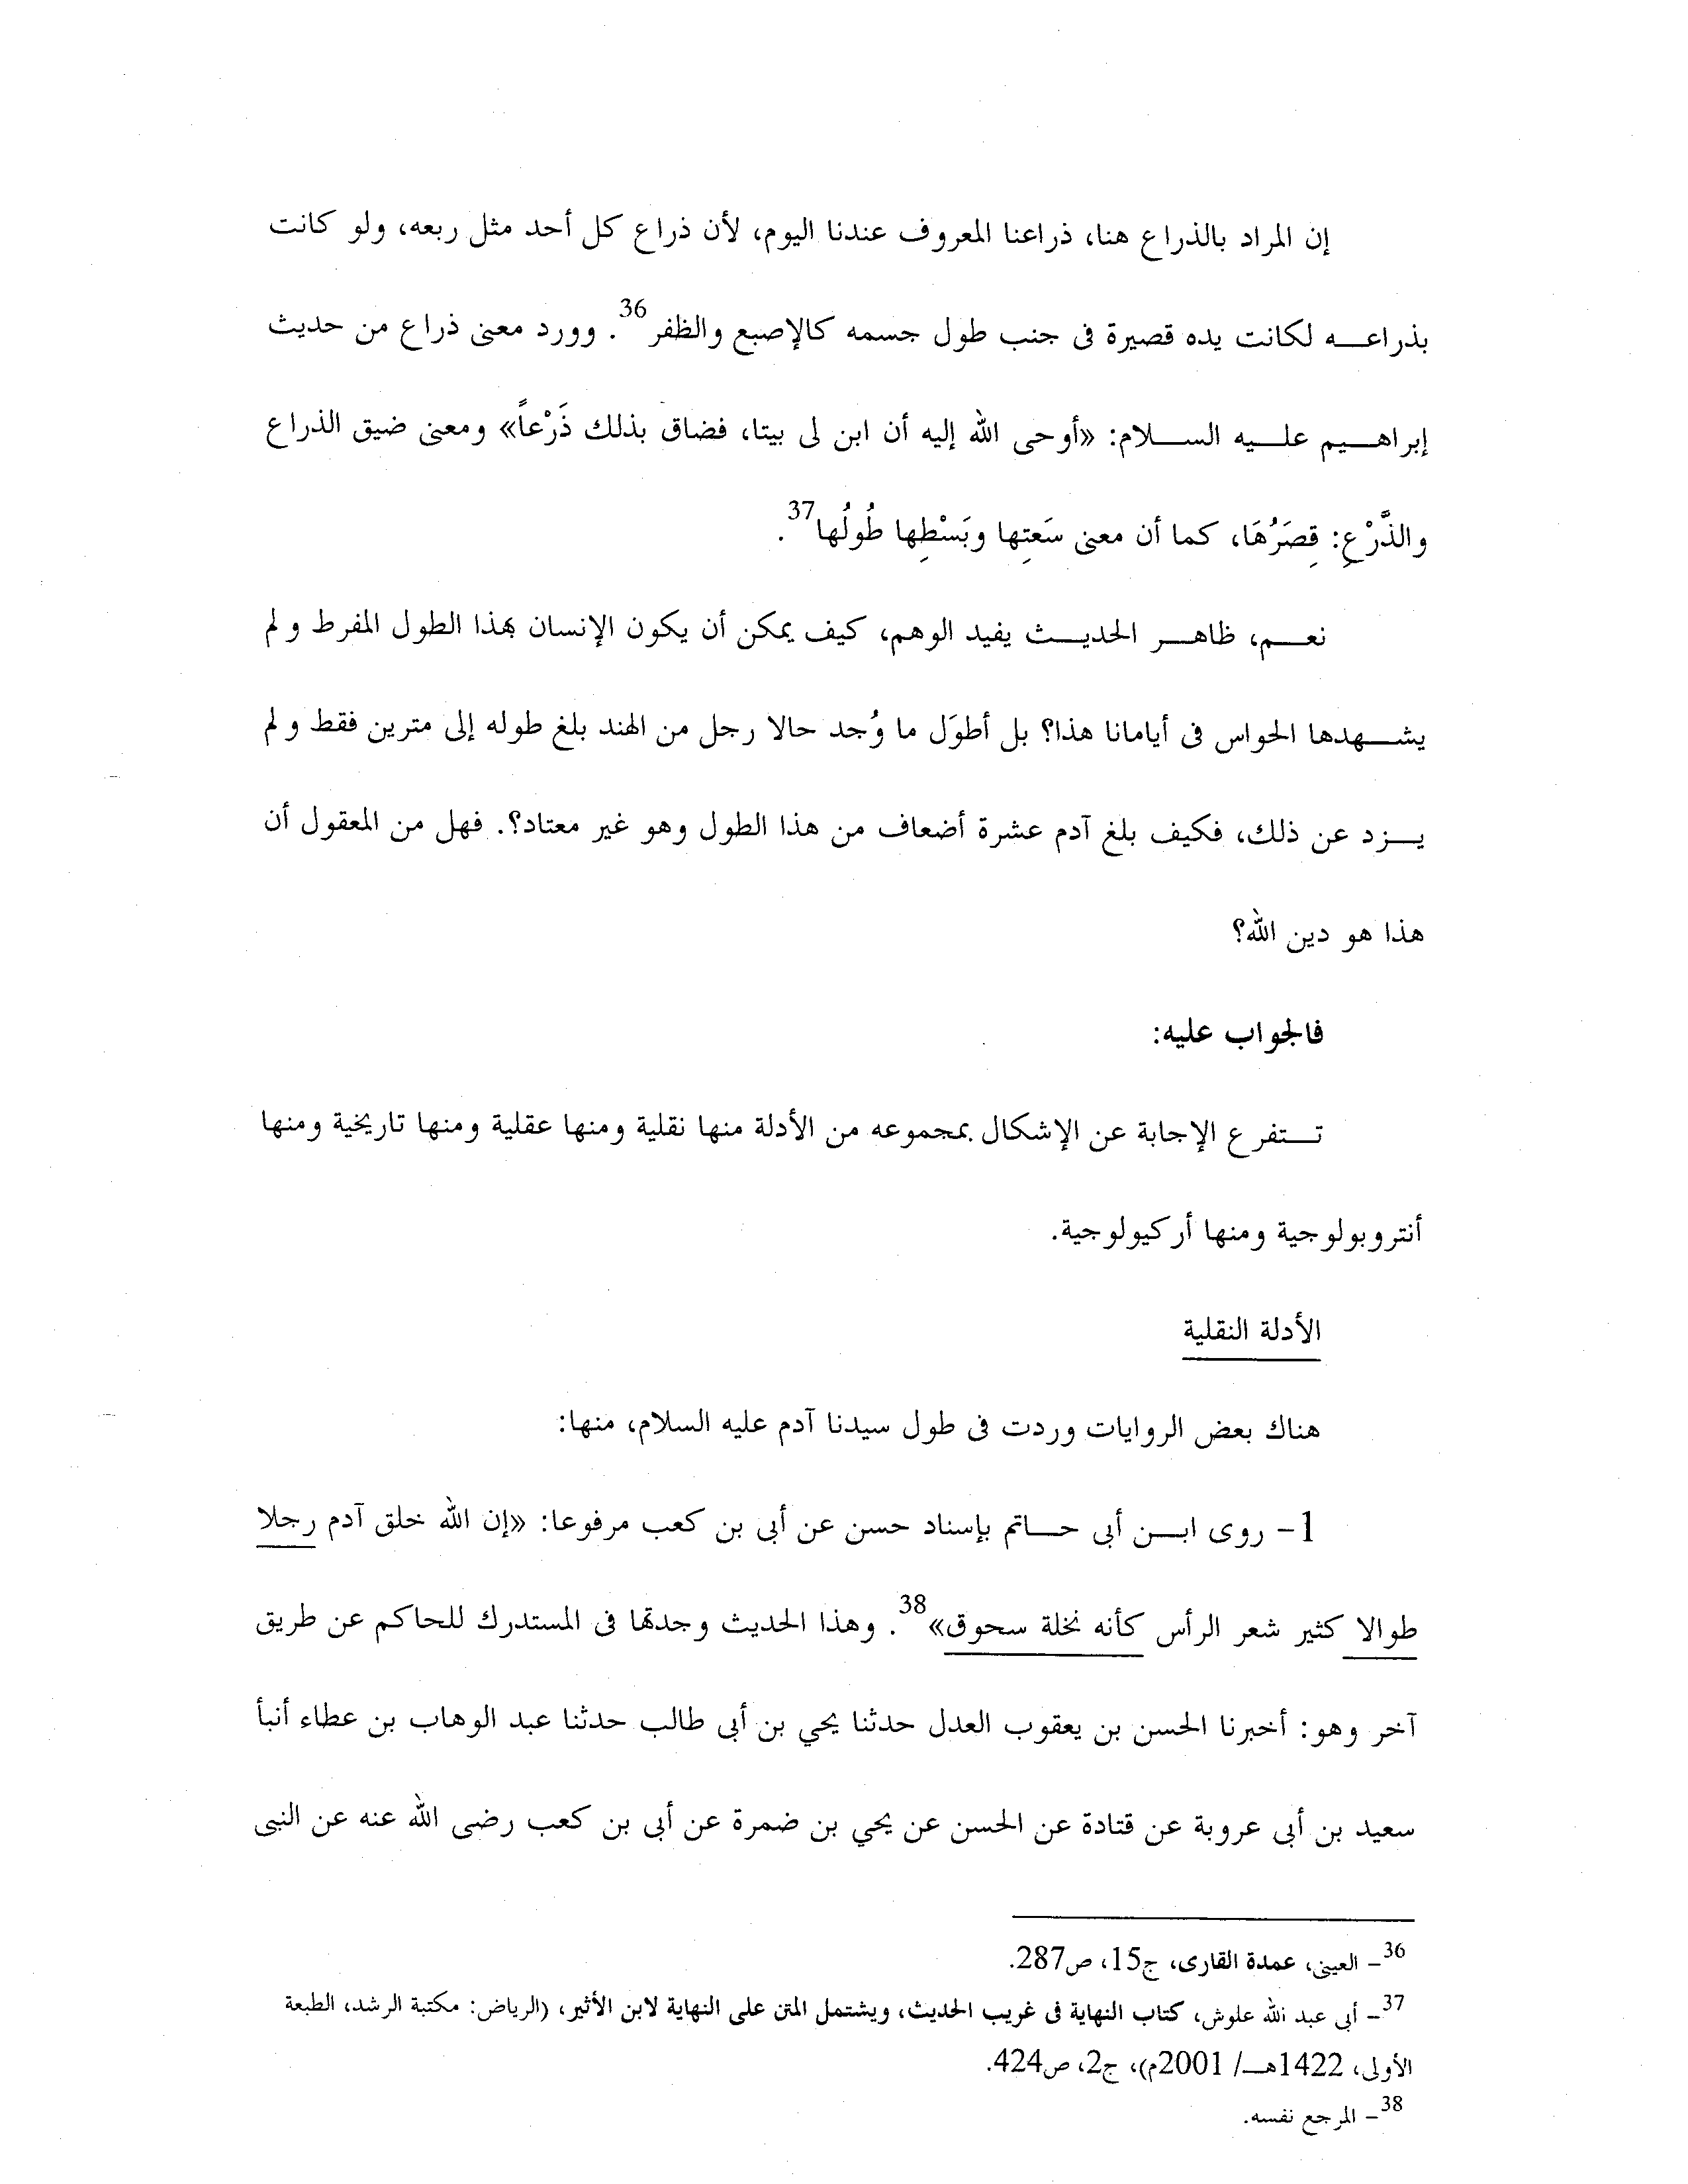 إن المراد بالذراع هنا، ذراعنا المعروف عندنا اليوم، لأن ذراع كل أحد مثل ربعه، ولو كانت
بذراعه لكانت يده قصيرة فى جنب طول جسمه كالإصبع والظفر36. وورد معنى ذراع من حديث
إبراهيم عليه السلام: «أوحى الله إليه أن ابن لى بيتا، فضاق بذلك ذَرْعاً» ومعنى ضيق الذراع
والذَّرْعِ: قِصَرُهَا، كما أن معنى سَعَتِها وبَسْطِها طُولُها37.
نعم، ظاهر الحديث يفيد الوهم، كيف يمكن أن يكون الإنسان بهذا الطول المفرط و لم
يشهدها الحواس فى أيامانا هذا؟ بل أطوَل ما وُجد حالا رجل من الهند بلغ طوله إلى مترين فقط و لم
يزد عن ذلك، فكيف بلغ آدم عشرة أضعاف من هذا الطول وهو غير معتاد؟. فهل من المعقول أن
هذا هو دين الله؟
فالجواب عليه:
تتفرع الإجابة عن الإشكال بمجموعه من الأدلة منها نقلية ومنها عقلية ومنها تاريخية ومنها
أنتروبولوجية ومنها أركيولوجية.
الأدلة النقلية
هناك بعض الروايات وردت فى طول سيدنا آدم عليه السلام، منها:
1- روى ابن أبى حاتم بإسناد حسن عن أبى بن كعب مرفوعا: «إن الله خلق آدم رجلا
طوالا كثير شعر الرأس كأنه نخلة سحوق»38. وهذا الحديث وجدتها فى المستدرك للحاكم عن طريق
آخر وهو: أخبرنا الحسن بن يعقوب العدل حدثنا يحي بن أبى طالب حدثنا عبد الوهاب بن عطاء أنبأ
سعيد بن أبى عروبة عن قتادة عن الحسن عن يحي بن ضمرة عن أبى بن كعب رضى الله عنه عن النبى
36- العينى، عمدة القارى، ج15، ص287.
37- أبى عبد الله علوش، كتاب النهاية فى غريب الحديث، ويشتمل المتن على النهاية لابن الأثير، (الرياض: مكتبة الرشد، الطبعة
الأولى، 1422هـ/ 2001م)، ج2، ص424.
38- المرجع نفسه.